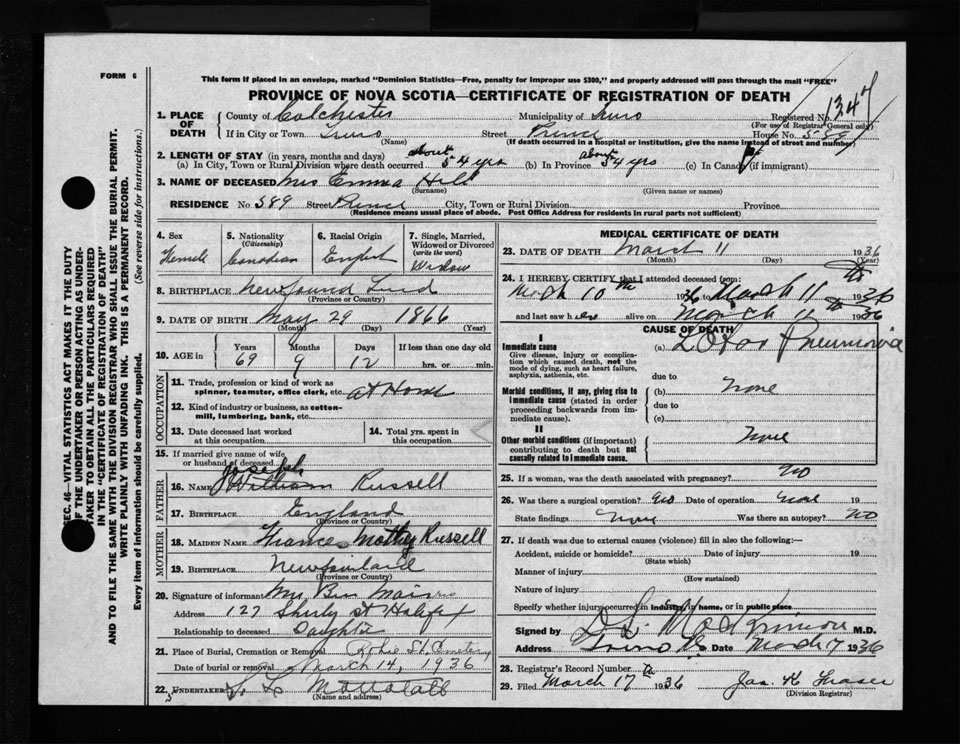 FORM 6
This form if placed in an envelope, marked "Dominion Statistics—Free, penalty for improper use $300," and properly addressed will pass through the mail "FREE"
PROVINCE OF NOVA SCOTIA—CERTIFICATE OF REGISTRATION OF DEATH
1347
1. PLACE OF DEATH
County of Colchester Municipality of Truro Registered No.
(For use of Registrar General only)
If in City or Town Truro Street Prince House No.
(If death occurred in a hospital or institution, give the name instead of street and number)
2. LENGTH OF STAY (in years, months and days)
(a) In City, Town or Rural Division where death occurred about 54 yrs (b) In Province about 54 yrs (c) In Canada (if immigrant)
3. NAME OF DECEASED Mrs Emma Hill
(Surname) (Given name or names)
RESIDENCE No. 589 Street Prince City, Town or Rural Division Province
(Residence means usual place of abode. Post Office Address for residents in rural parts not sufficient)
4. Sex Female
5. Nationality (Citizenship) Canadian
6. Racial Origin English
7. Single, Married, Widowed or Divorced (write the word) Widow
8. BIRTHPLACE Newfoundland
(Province or Country)
9. DATE OF BIRTH May 29 1866
(Month) (Day) (Year)
10. AGE in Years Months Days If less than one day old
69 9 12 hrs. or min.
OCCUPATION
11. Trade, profession or kind of work as spinner, teamster, office clerk, etc. at Home
12. Kind of industry or business, as cotton-mill, lumbering, bank, etc.
13. Date deceased last worked at this occupation
14. Total yrs. spent in this occupation
15. If married give name of wife or husband of deceased
FATHER
16. NAME Joseph William Russell
17. BIRTHPLACE England
(Province or Country)
MOTHER
18. MAIDEN NAME Russell
19. BIRTHPLACE Newfoundland
(Province or Country)
20. Signature of informant Mrs Ben
Address 127 St Halifax
Relationship to deceased Daughter
21. Place of Burial, Cremation or Removal Robie St. Cemetery
Date of burial or removal March 14, 1936
22. UNDERTAKER
(Name and address)
MEDICAL CERTIFICATE OF DEATH
23. DATE OF DEATH March 11 1936
(Month) (Day) (Year)
24. I HEREBY CERTIFY that I attended deceased from:
March 10 1936 March 11 1936
and last saw her alive on March 11 1936
CAUSE OF DEATH
I
Immediate cause
Give disease, injury or complication which caused death, not the mode of dying, such as heart failure, asphyxia, asthenia, etc.
(a) Lobar Pneumonia
due to
Morbid conditions, if any, giving rise to immediate cause (stated in order proceeding backwards from immediate cause).
(b) none
due to
(c)
II
Other morbid conditions (if important) contributing to death but not causally related to immediate cause.
None
25. If a woman, was the death associated with pregnancy? No
26. Was there a surgical operation? No Date of operation None 19
State findings None Was there an autopsy? No
27. If death was due to external causes (violence) fill in also the following:—
Accident, suicide or homicide? Date of injury 19
(State which)
Manner of injury
(How sustained)
Nature of injury
Specify whether injury occurred in industry, in home, or in public place
Signed by M.D.
Address Truro Date 1936
28. Registrar's Record Number
29. Filed March 17th 1936 Jas. K Fraser
(Division Registrar)
SEC. 46—VITAL STATISTICS ACT MAKES IT THE DUTY OF THE UNDERTAKER OR PERSON ACTING AS UNDERTAKER TO OBTAIN ALL THE PARTICULARS REQUIRED IN THE "CERTIFICATE OF REGISTRATION OF DEATH" AND TO FILE THE SAME WITH THE DIVISION REGISTRAR WHO SHALL ISSUE THE BURIAL PERMIT.
WRITE PLAINLY WITH UNFADING INK. THIS IS A PERMANENT RECORD.
Every item of information should be carefully supplied. (See reverse side for instructions.)